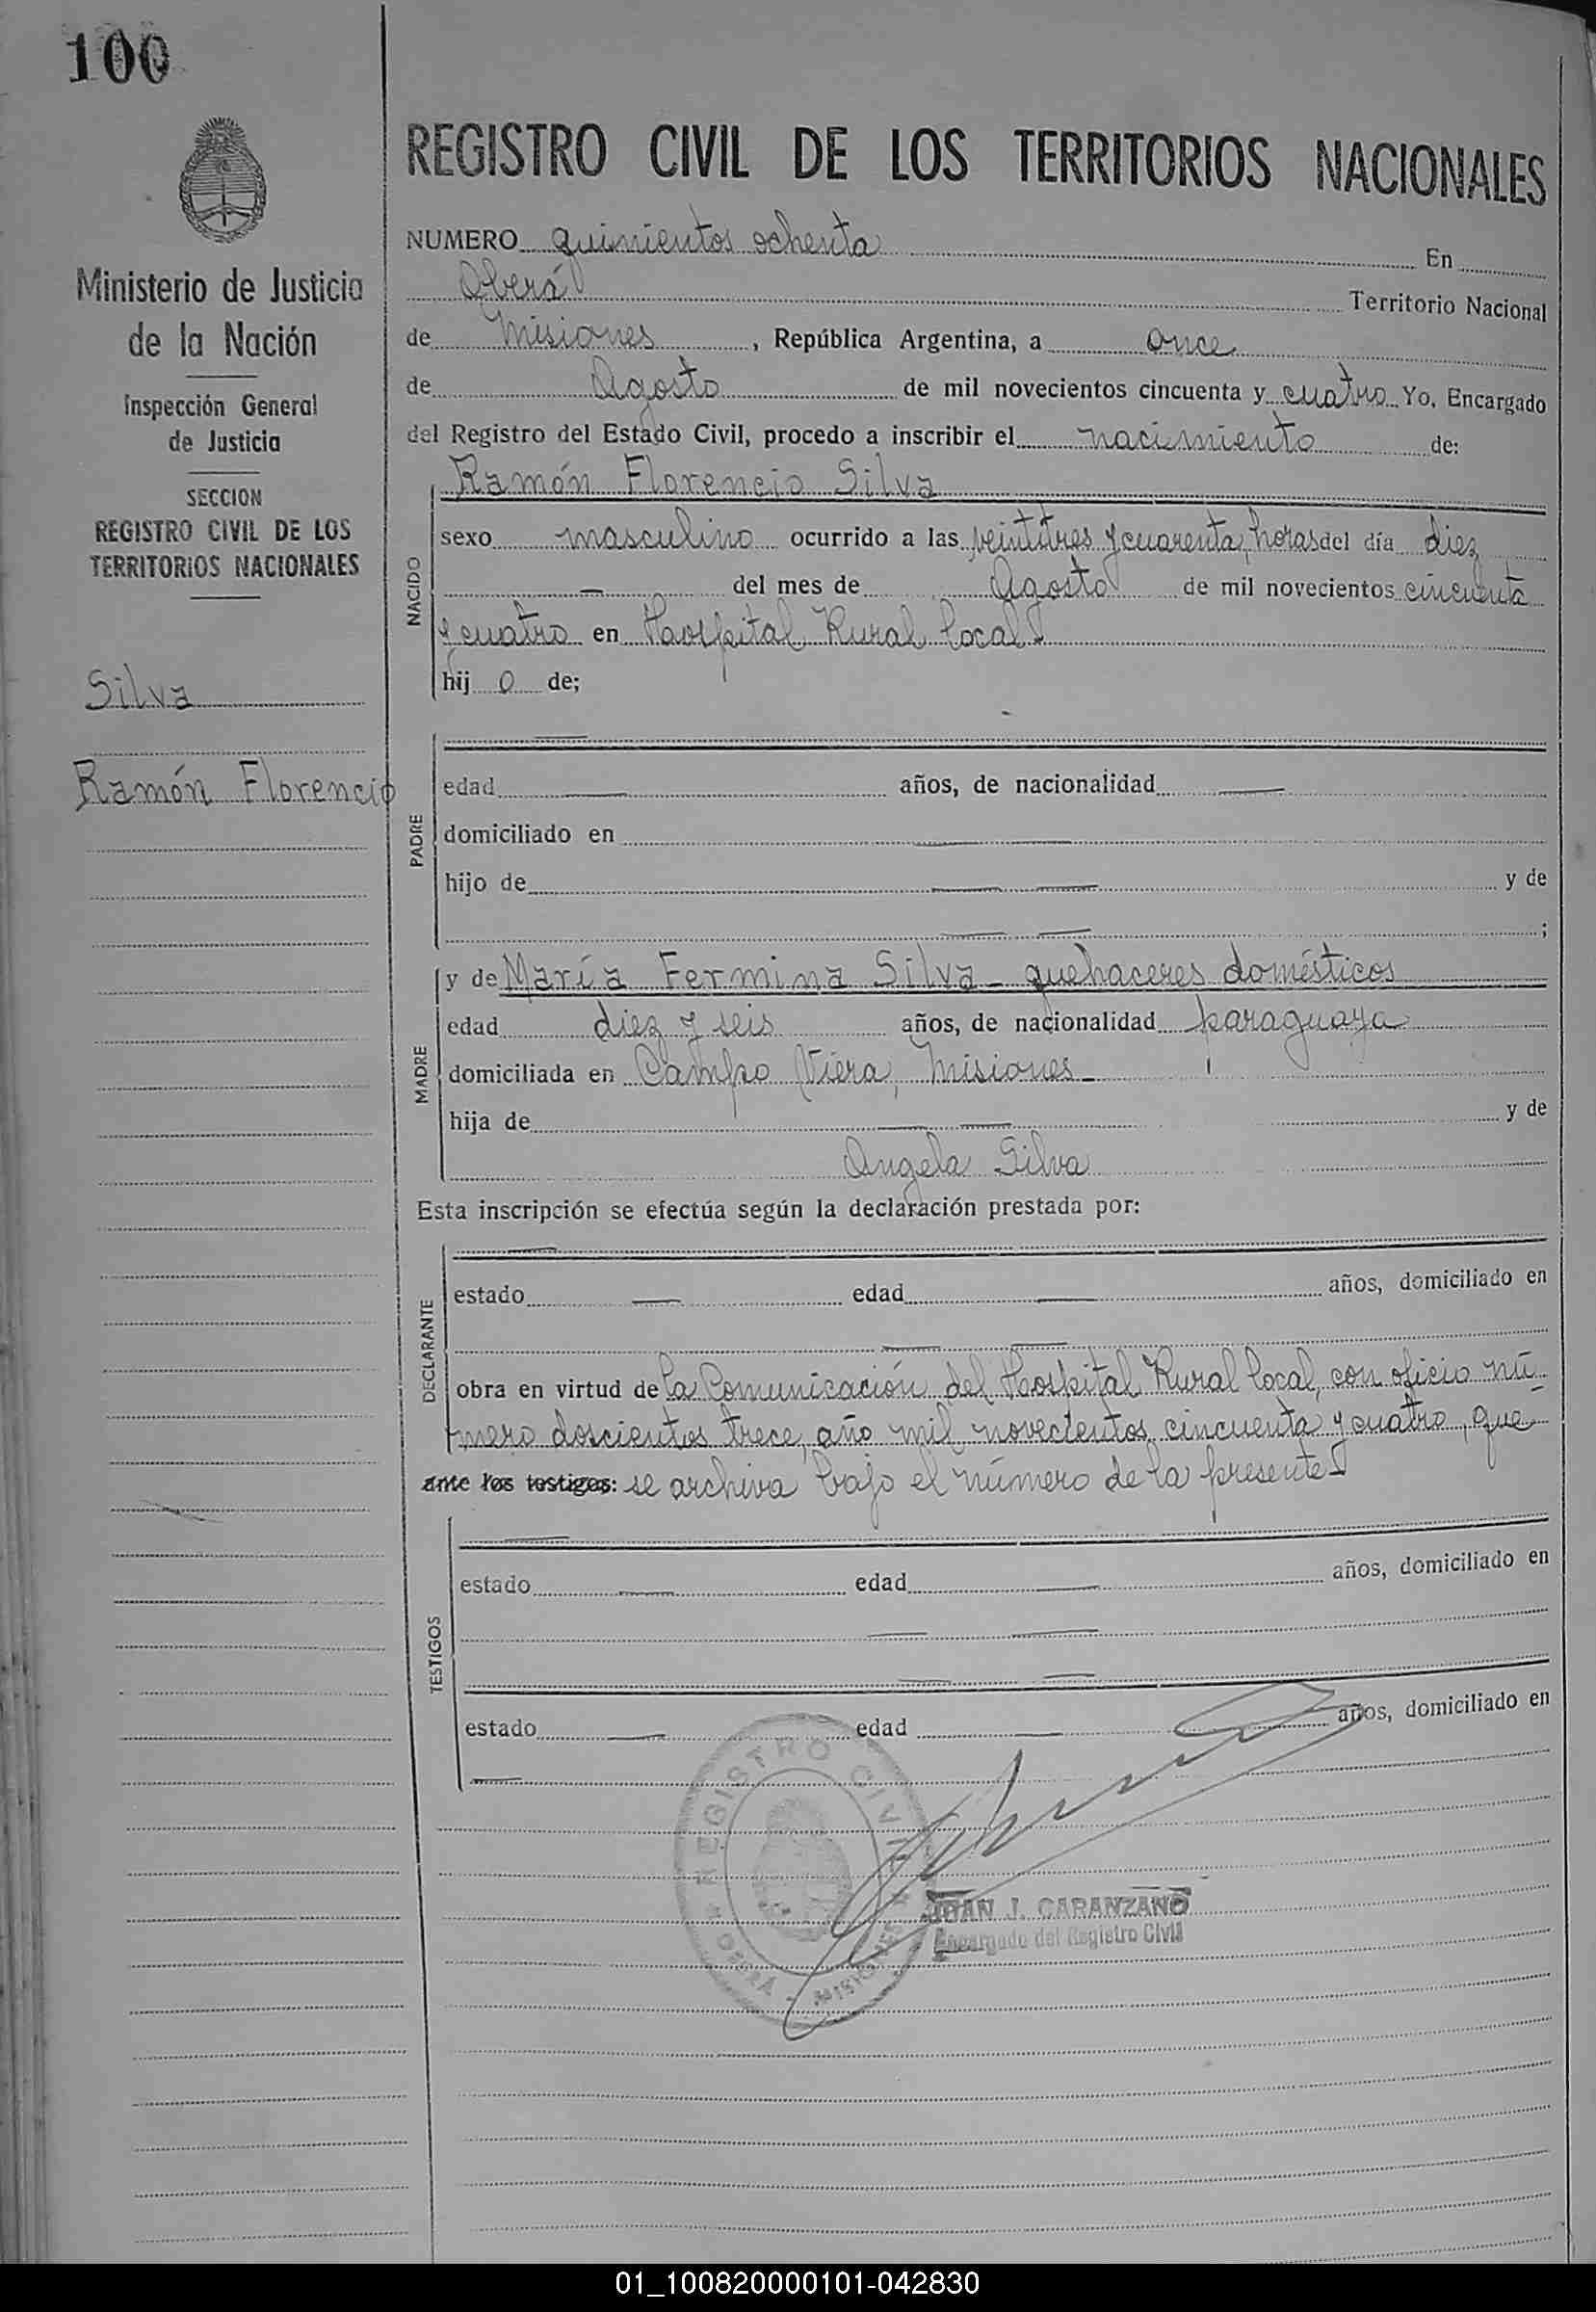 100
REGISTRO CIVIL DE LOS TERRITORIOS NACIONALES
Ministerio de Justicia
de la Nación
Inspección General
de Justicia
SECCION
REGISTRO CIVIL DE LOS
TERRITORIOS NACIONALES
Silva
Ramón Florencio
NUMERO quinientos ochenta En
Oberá Territorio Nacional
de Misiones, República Argentina, a once
de Agosto de mil novecientos cincuenta y cuatro Yo, Encargado
del Registro del Estado Civil, procedo a inscribir el nacimiento de:
NACIDO
Ramón Florencio Silva
sexo masculino ocurrido a las veintitres y cuarenta, horas del día diez
— del mes de Agosto de mil novecientos cincuenta
y cuatro en Hospital Rural local
hij o de;
PADRE
—
edad — años, de nacionalidad —
domiciliado en — —
hijo de — — y de
— — ;
MADRE
y de María Fermina Silva - quehaceres domésticos
edad diez y seis años, de nacionalidad paraguaya
domiciliada en Campo Viera, Misiones -
hija de — — y de
Angela Silva
Esta inscripción se efectúa según la declaración prestada por:
DECLARANTE
—
estado — edad — años, domiciliado en
— —
obra en virtud de la Comunicación del Hospital Rural local, con oficio nú-
mero doscientos trece, año mil novecientos cincuenta y cuatro, que
ante los testigos: se archiva bajo el número de la presente
TESTIGOS
—
estado — edad — años, domiciliado en
— —
— —
estado — edad — años, domiciliado en
—
REGISTRO CIVIL
OBERÁ - MISIONES
JUAN J. CARANZANO
Encargado del Registro Civil
01_100820000101-042830